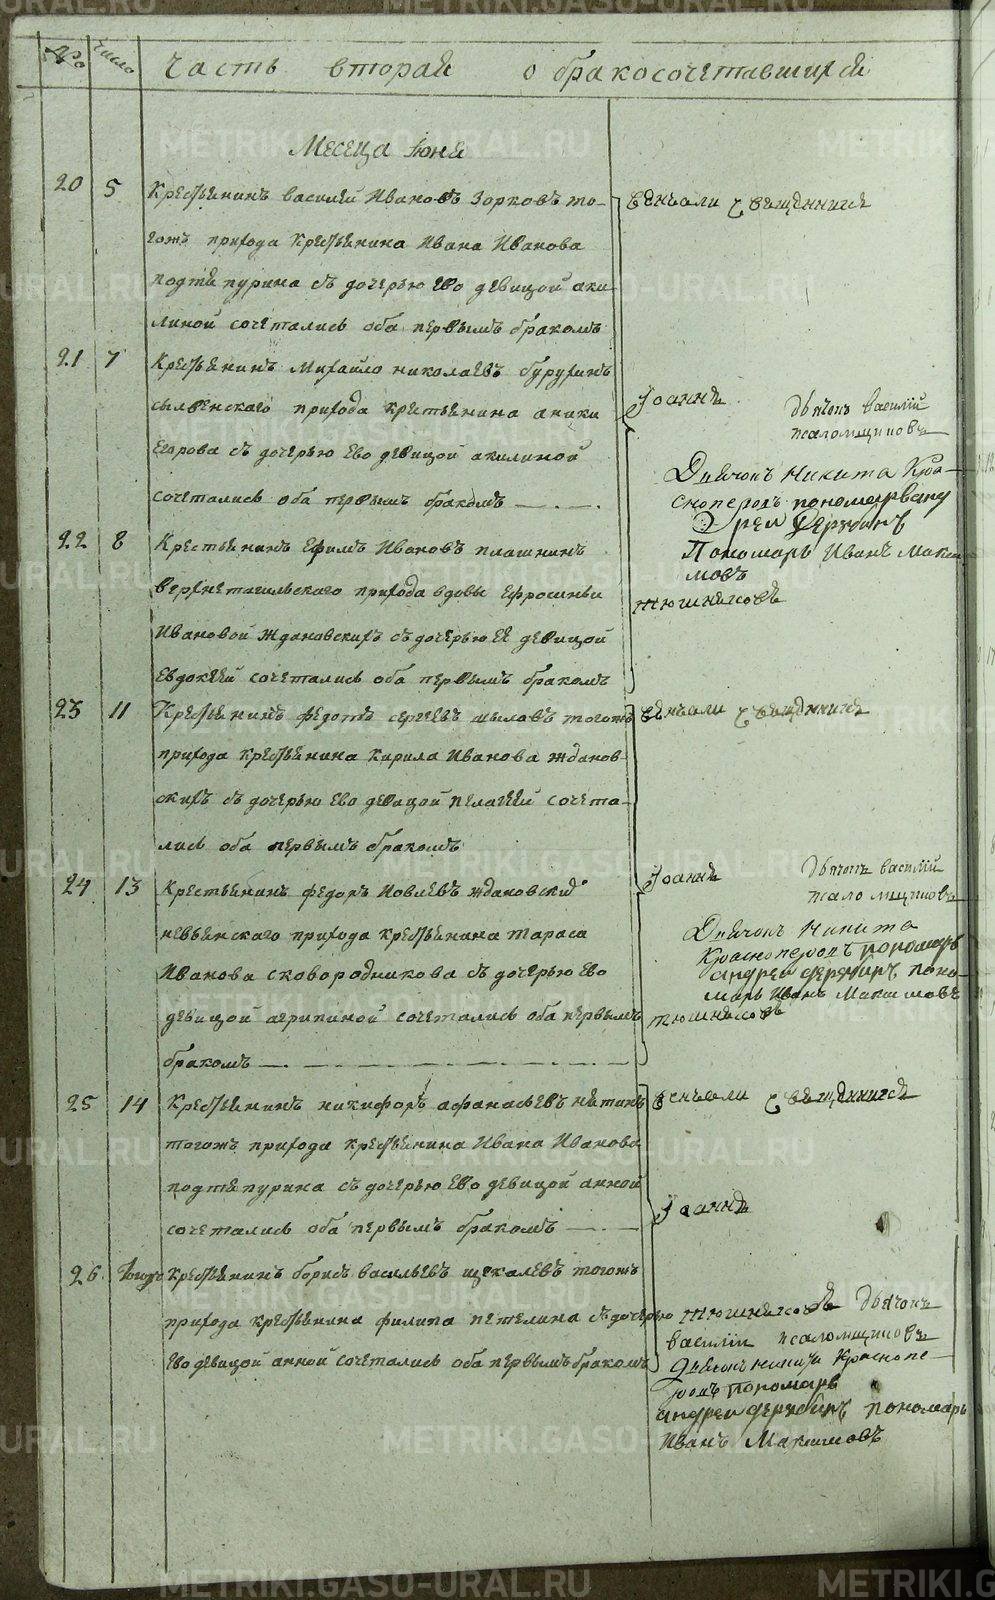 № Число Часть вторая о бракосочетавшихся
Месеца Июня
20 5 Крестьянинъ василей Ивановъ Зорковъ то-
гожъ прихода Крестьянина Ивана Иванова
подтяпурина съ дочерью ево девицой аки-
линой сочетались оба первымъ бракомъ
венчали священники
21 7 Крестьянинъ Михайло николаевъ бурухинъ
сылвенского прихода крестьянина аники
Егорова съ дочерью Ево девицой акилиной
сочетались оба первымъ бракомъ
Иоаннъ
дьячокъ василий
псаломщиковъ
Дьячокъ Никита Кра-
сноперовъ пономарь
Андреи Дерябинъ
Пономарь Иванъ Макси-
мовъ
тюшняковъ
22 8 Крестьянинъ Ефимъ Ивановъ плашнинъ
верхнетагильского прихода вдовы Ефросиньи
Ивановой Ждановскихъ съ дочерью ея девицой
Евдокеей сочетались оба первымъ бракомъ
23 11 Крестьянинъ федотъ сергеевъ шыловъ тогожъ
прихода крестьянина Кирила Иванова жданов-
скихъ съ дочерью ево девицой пелагеей сочета-
лись оба первымъ бракомъ
венчали священники
24 13 Крестьянинъ федоръ Иовлевъ ждановский
невьянского прихода крестьянина тараса
Иванова сковородникова съ дочерью Ево
девицой агрипиной сочетались оба первымъ
бракомъ
Иоаннъ
дьячокъ василий
псаломщиковъ
Дьячокъ Никита
Красноперовъ пономарь
андреи дерябинъ поно-
марь Иванъ Максимовъ
тюшняковъ
25 14 Крестьянинъ никифоръ афанасьевъ
тогожъ прихода крестьянина Ивана Иванова
подтяпурина съ дочерью Ево девицой анной
сочетались оба первымъ бракомъ
венчали священники
Иоаннъ
26 тогожъ Крестьянинъ борисъ васильевъ щекалевъ тогожъ
прихода крестьянина филипа петелина съ дочерью
Ево девицой анной сочетались оба первымъ бракомъ
тюшняковъ дьячокъ
василии псаломщиковъ
Дьячокъ никита Краснопе-
ровъ пономарь
андреи дерябинъ пономарь
Иванъ Максимовъ
METRIKI.GASO-URAL.RU